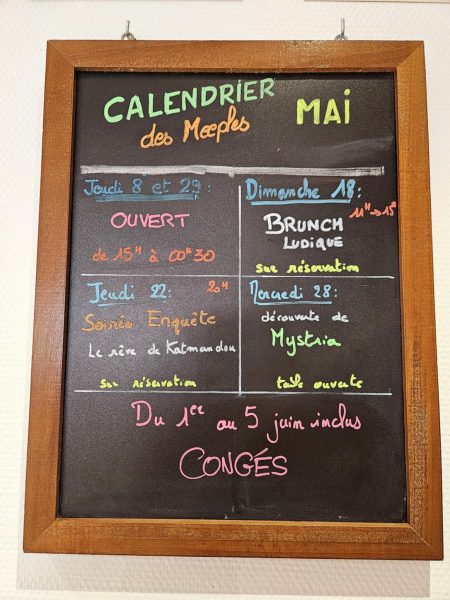 CALENDRIER
des Meeples
MAI
Jeudi 8 et 29:
OUVERT
de 15H à 00H30
Dimanche 18:
11H→15H
BRUNCH
LUDIQUE
sur réservation
Jeudi 22: 20H
Soirée Enquête
Le rêve de Katmandou
sur réservation
Mercredi 28:
découverte de
Mystria
table ouverte
Du 1er au 5 juin inclus
CONGÉS